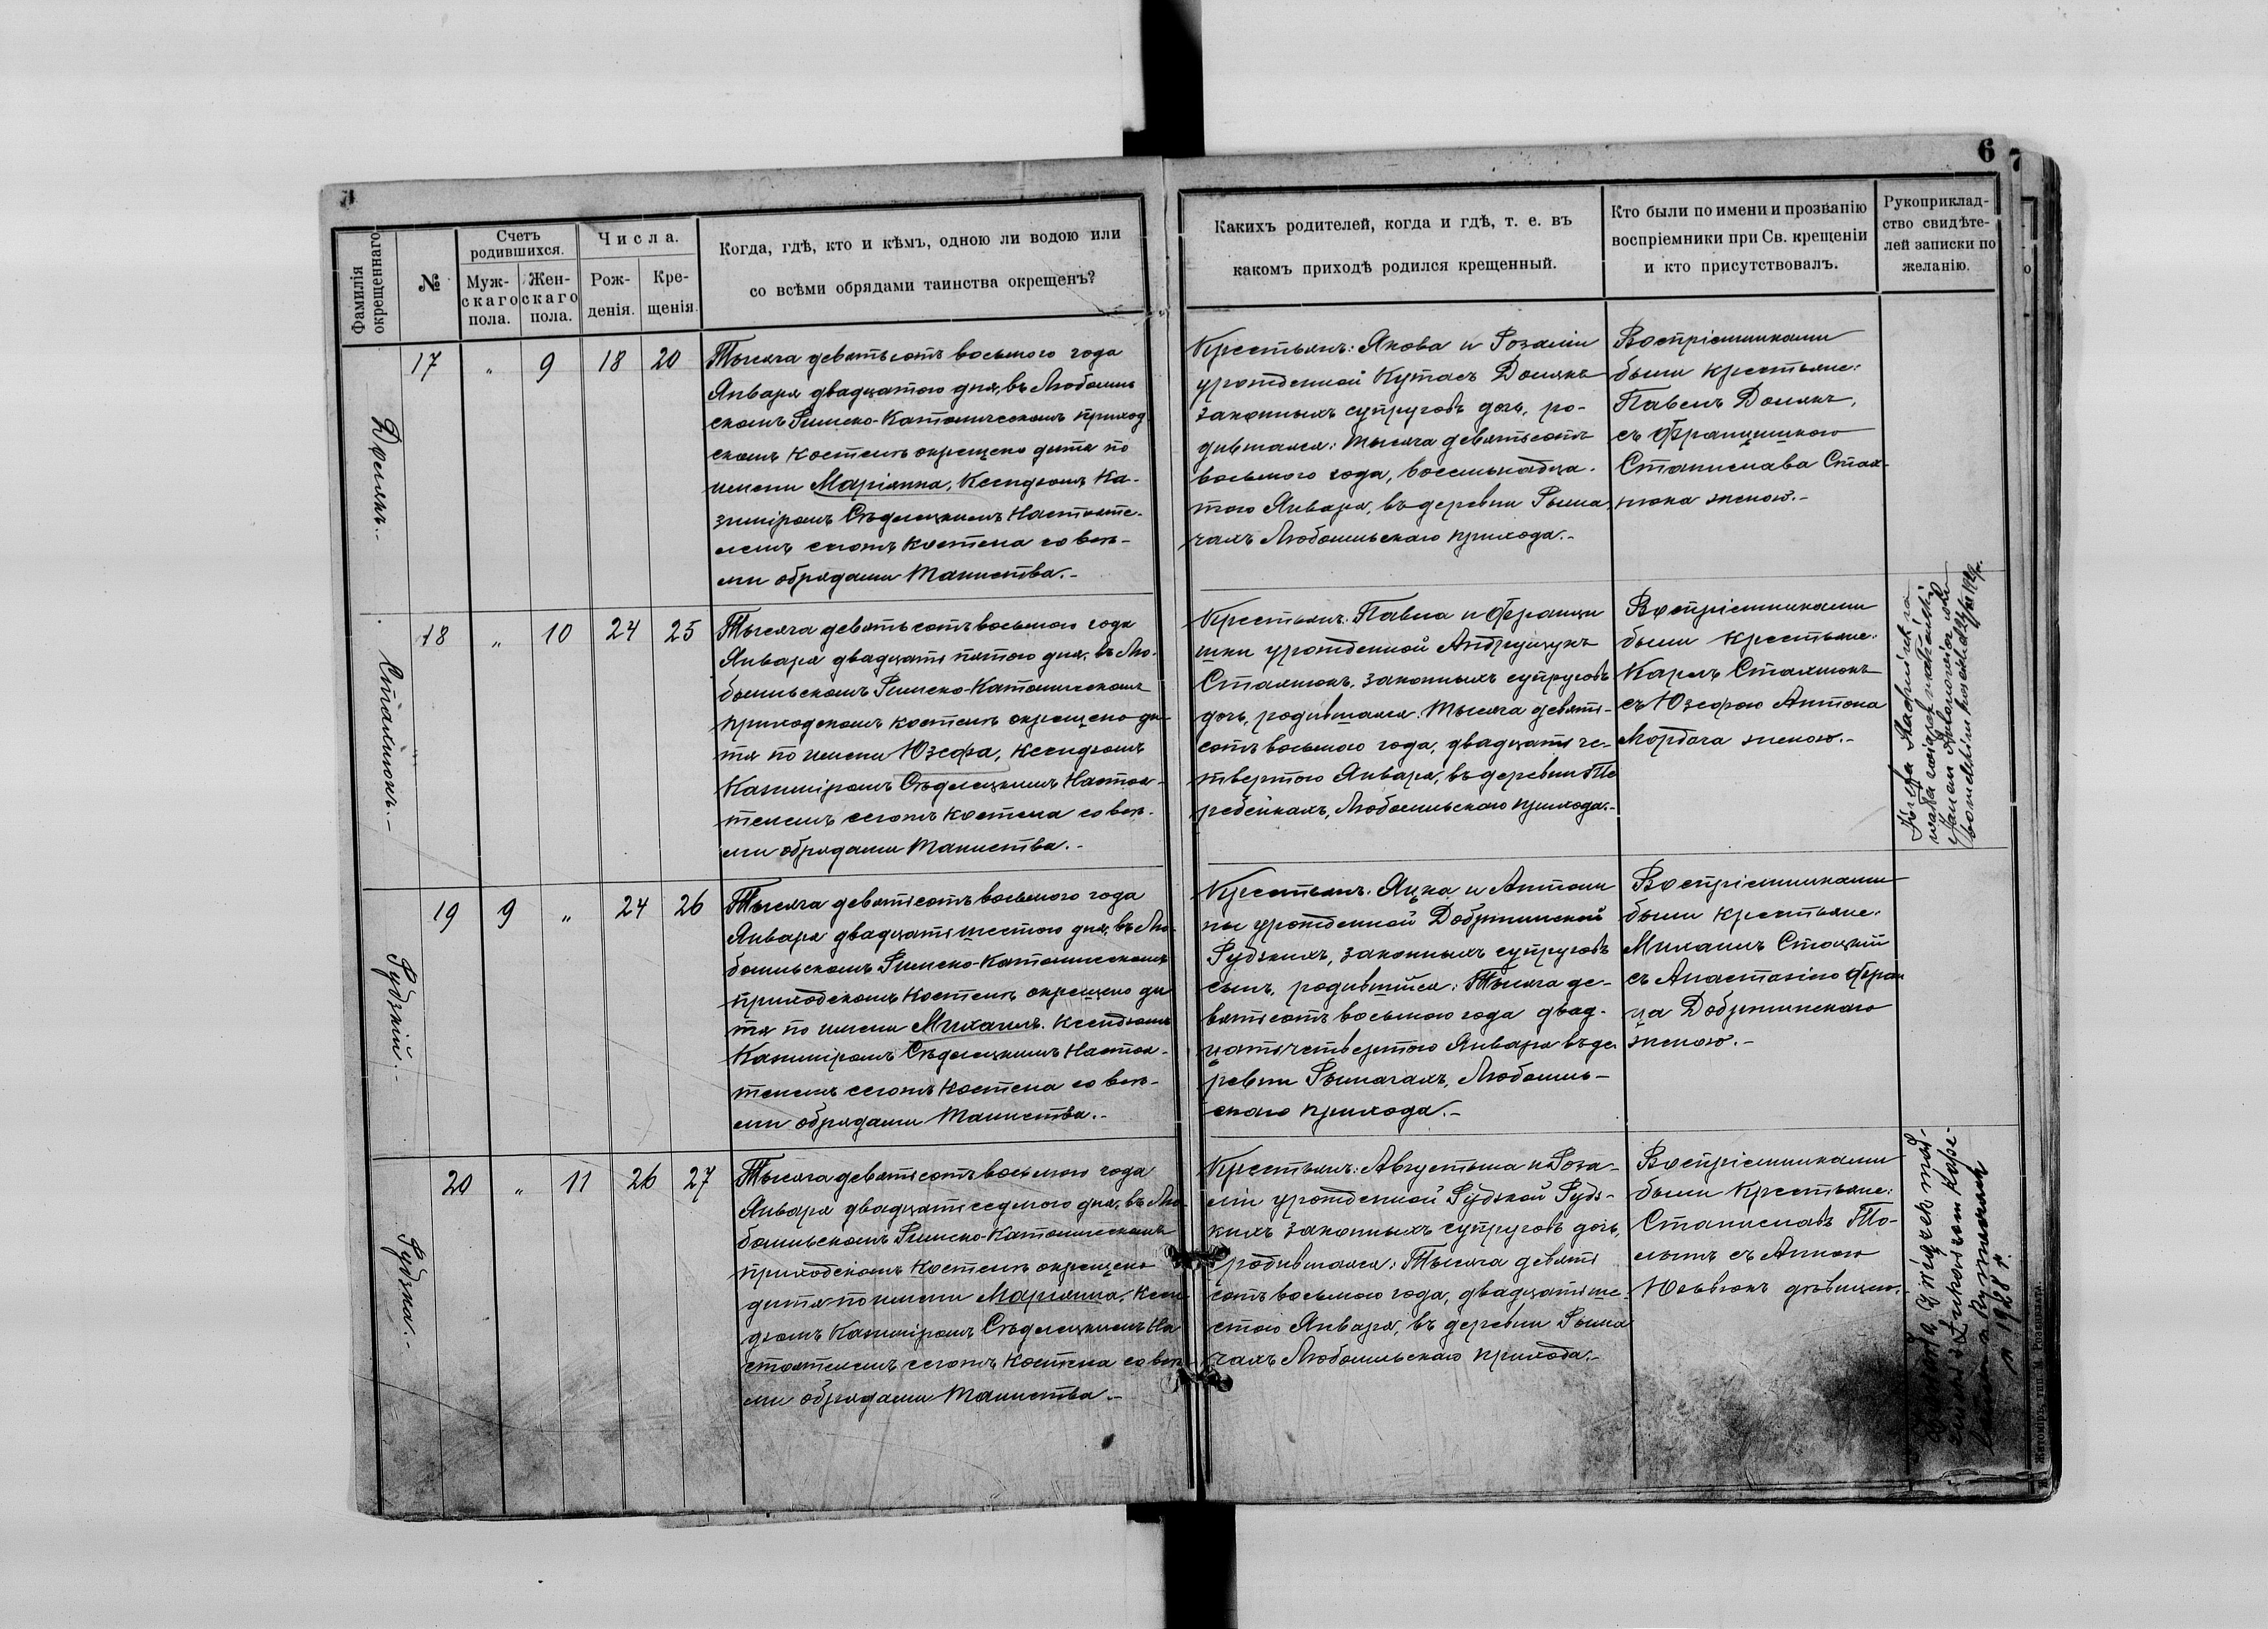 6
7
Фамилія
окрещеннаго
№
Счетъ
родившихся.
Муж-
скаго
пола.
Жен-
скаго
пола.
Числа.
Рож-
денія.
Кре-
щенія.
Когда, гдѣ, кто и кѣмъ, одною ли водою или
со всѣми обрядами таинства окрещенъ?
Какихъ родителей, когда и гдѣ, т. е. въ
какомъ приходѣ родился крещенный.
Кто были по имени и прозванію
воспріемники при Св. крещеніи
и кто присутствовалъ.
Рукоприклад-
ство свидѣте-
лей записки по
желанію.
17 „ 9 18 20
Тысяча девятьсотъ восьмого года
Января двадцатого дня, въ Любомль
скомъ Римско-Католическомъ приход
скомъ костелѣ окрещено дитя по
имени Маріянна, Ксендзомъ Ка-
зиміромъ Сѣдлецкимъ Настояте-
лемъ сегожъ костела со всѣ-
ми обрядами Таинства.-
Крестьянъ: Якова и Розаліи
урожденной Кутасъ Долякъ
законныхъ супруговъ дочь, ро-
дившаяся: тысяча девятьсотъ
восьмого года, восемьнадца-
того Января, въ деревни Рыма
чахъ Любомльскаго прихода.-
Воспріемниками
были крестьяне:
Павелъ Долякъ,
съ Францишкою
Станислава Стах-
нюка женою.-
Стахнюкъ.-
18 „ 10 24 25
Тысяча девятьсотъ восьмого года
Января двадцать пятого дня, въ Лю-
бомльскомъ Римско-Католическомъ
приходскомъ костелѣ окрещено ди-
тя по имени Юзефа, Ксендзомъ
Казиміромъ Сѣдлецкимъ Настоя-
телемъ сегожъ костела со всѣ-
ми обрядами Таинства.-
Крестьянъ: Павла и Францы
шки урожденной Андрущукъ
Стахнюкъ, законныхъ супруговъ
дочь, родившаяся: Тысяча девять-
сотъ восьмого года, двадцать че-
твертого Января, въ деревни Те
ребейкахъ, Любомльскаго прихода.-
Воспріемниками
были крестьяне:
Карлъ Стахнюкъ
съ Юзефою Антона
Мордача женою.-
Józefa Stachniuk za
warła związek małżeński
19 9 „ 24 26
Рудзкій.-
Тысяча девятьсотъ восьмого года
Января двадцать шестого дня, въ Лю-
бомльскомъ Римско-Католическомъ
приходскомъ костелѣ окрещено ди
тя по имени Михаилъ. Ксендзомъ
Казиміромъ Сѣдлецкимъ Настоя-
телемъ сегожъ костела со всѣ-
ми обрядами Таинства.-
Крестьянъ: Яцка и Антони
ны урожденной Добрчинской
Рудзкихъ, законныхъ супруговъ
сынъ, родившійся: Тысяча де-
вятьсотъ восьмого года двад-
цать четвертого Января въ де
ревни Рымачахъ, Любомль-
скаго прихода.-
Воспріемниками
были крестьяне:
Михаилъ Стоцкій
съ Анастазіею Фран
ца Добрчинскаго
женою.-
20 „ 11 26 27
Рудзка.-
Тысяча девятьсотъ восьмого года
Января двадцать седьмого дня, въ Лю-
бомльскомъ Римско-Католическомъ
приходскомъ Костелѣ окрещено
дитя по имени Маріянна, Ксен
дзомъ Казиміромъ Сѣдлецкимъ На
стоятелемъ сегожъ костела со всѣ-
ми обрядами Таинства.-
Крестьянъ: Августына и Роза-
ліи урожденной Рудзкой Рудз-
кихъ законныхъ супруговъ дочь,
родившаяся: Тысяча девять
сотъ восьмого года, двадцать ше-
стого Января, въ деревни Рыма
чахъ Любомльскаго прихода.-
Воспріемниками
были Крестьяне:
Станиславъ
съ Анною
дѣвицею.
związek mał-
w Rymaczach
1928 r.